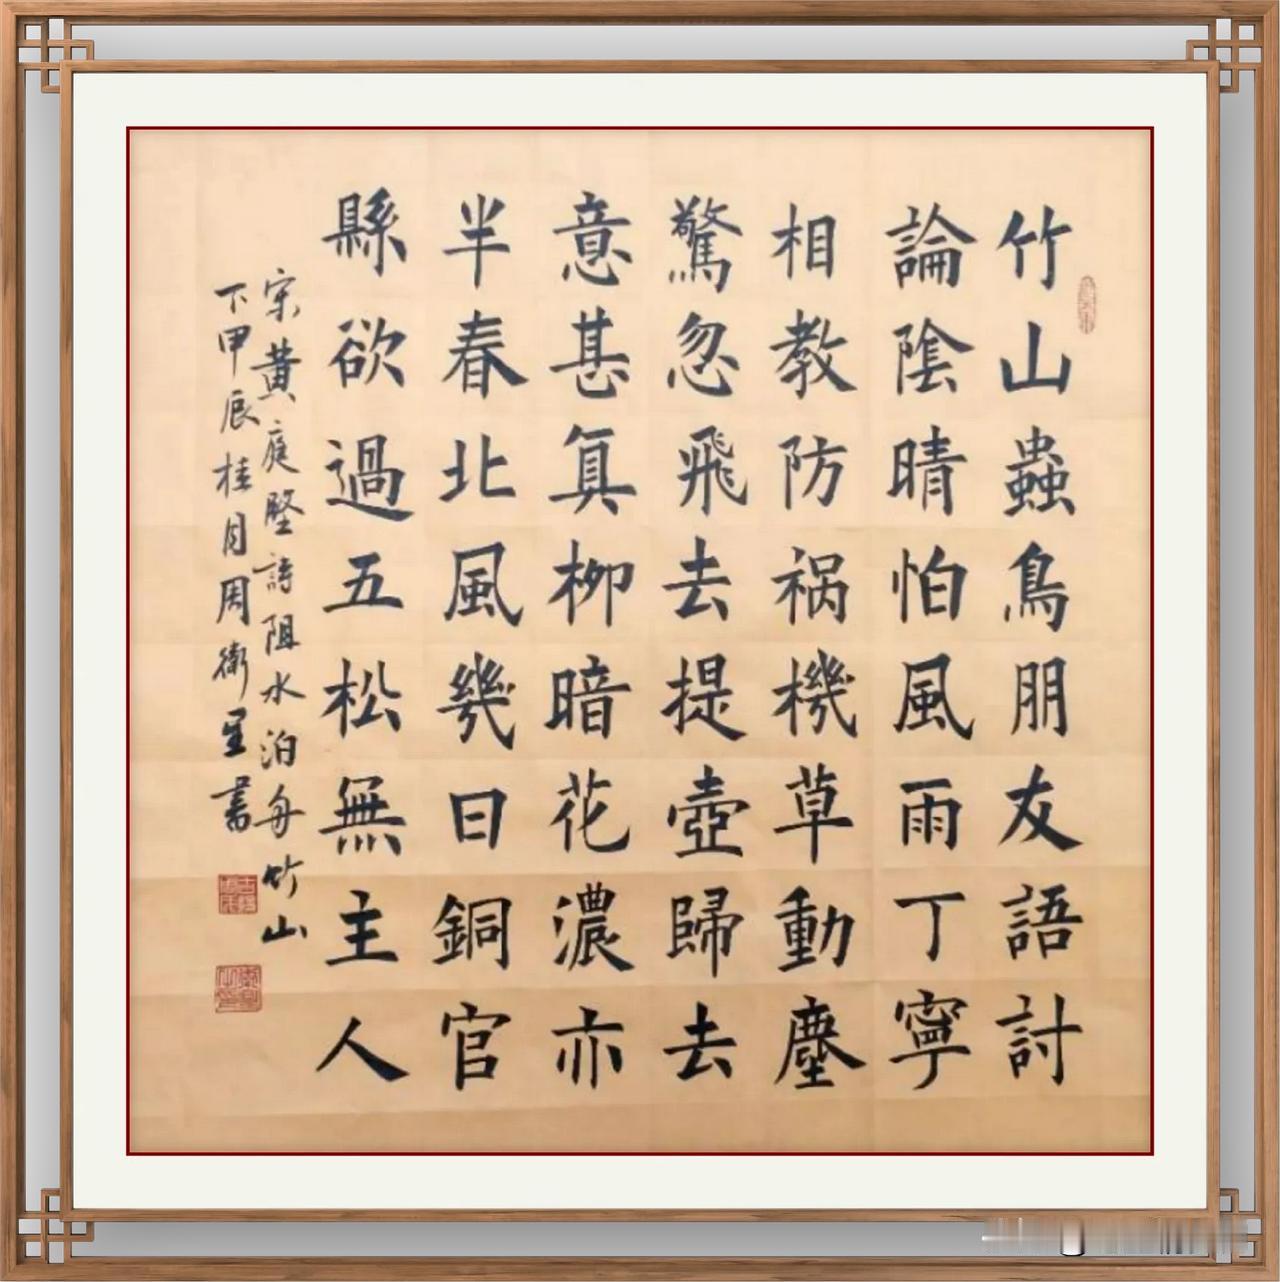 竹山蟲鳥朋友語討
論陰晴怕風雨丁寧
相教防祸機草動塵
驚忽飛去提壺歸去
意甚真柳暗花濃亦
半春北風幾日銅官
縣欲過五松無主人
宋黃庭堅詩阻水泊舟竹山
下甲辰桂月周衛星書